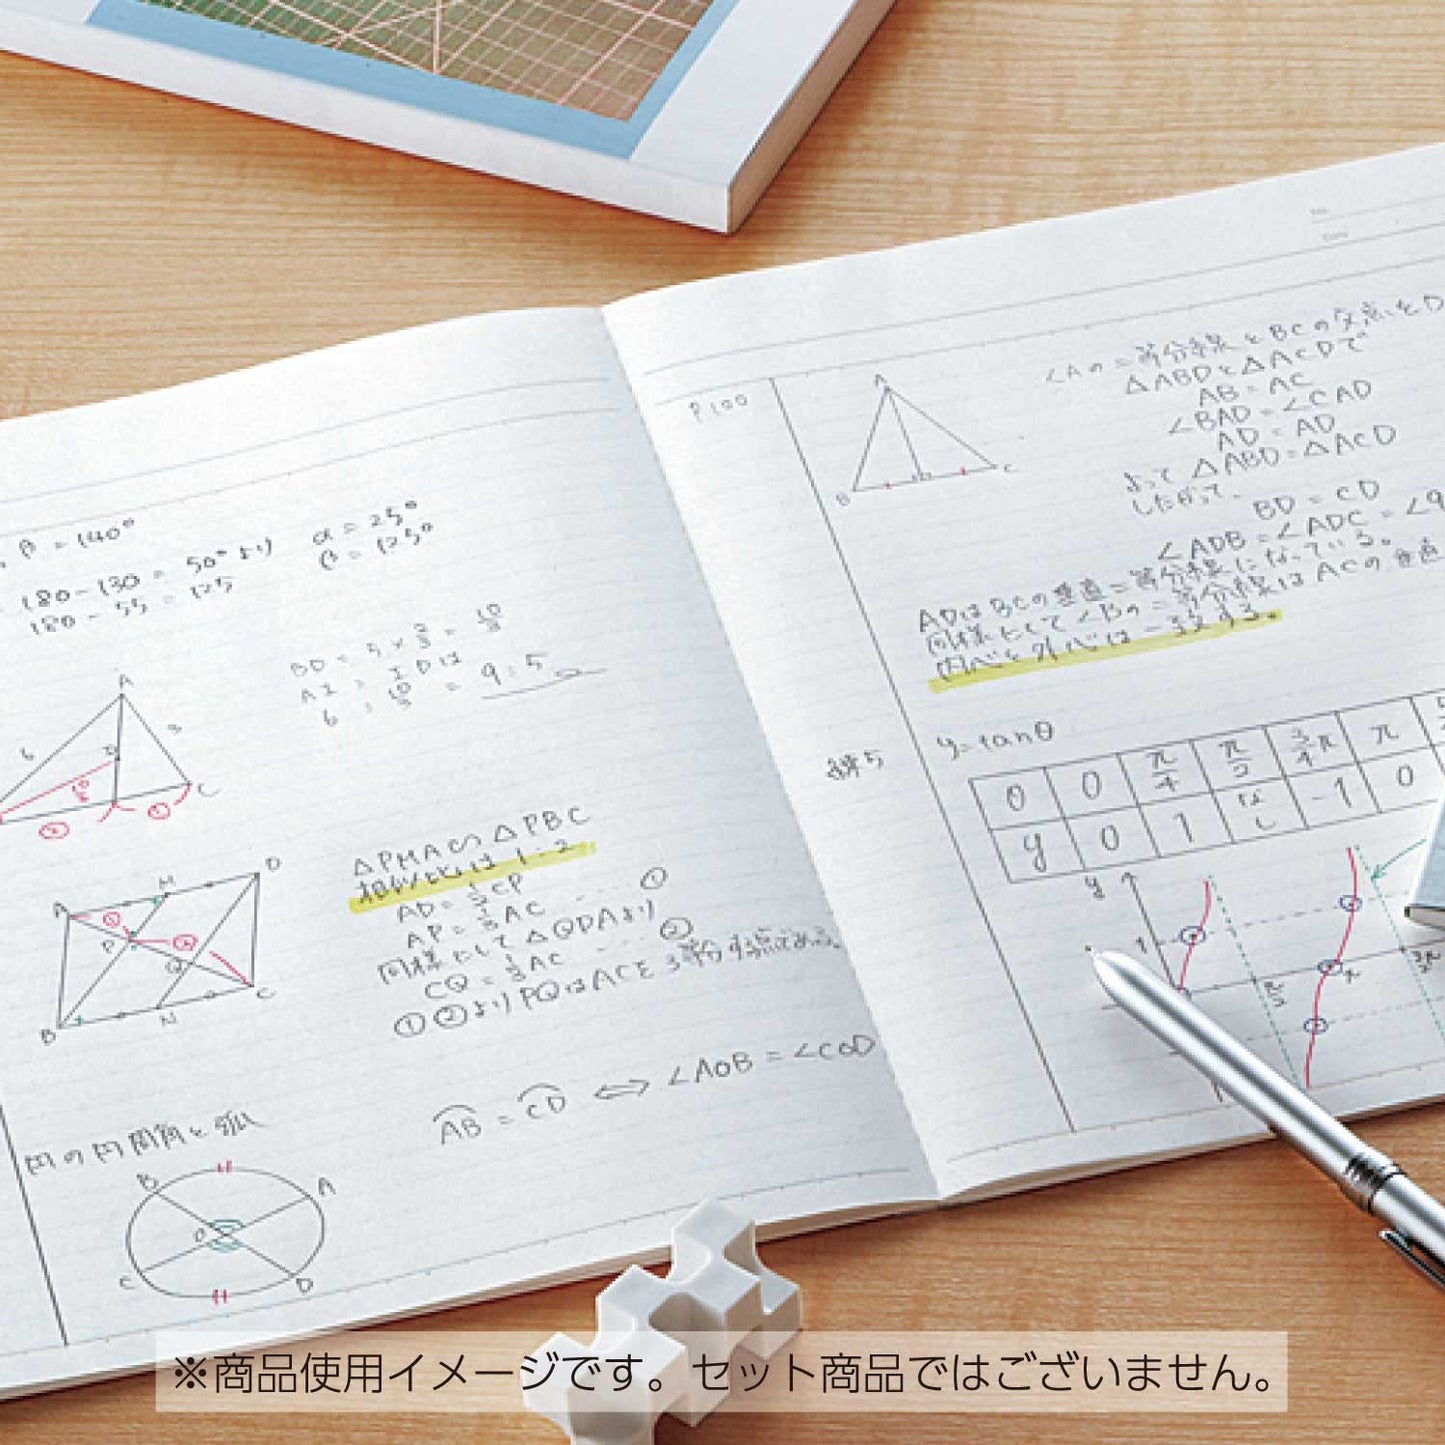 β = 140°
180-130 = 50°より
180 - 55 = 125
α = 25°
β = 125°
BD = 5 ×
AI : ID は
6 : 10/3 = 9:5
A
6
5
I
C
△PMA∽△PBC
相似比は 1:2
AP = 1/3 AC …… ①
同様にして △QDAより
CQ = 1/3 AC …… ②
①②よりPQはACを3等分する点である。
A
M
D
P
Q
B
N
C
円の円周角と弧
AB = CD ⇔ ∠AOB = ∠COD
B
A
O
C
D
No.
Date
P100
A
B
C
∠Aの二等分線とBCの交点をD
△ABDと△ACDで
AB = AC
∠BAD = ∠CAD
AD = AD
よって △ABD = △ACD
したがって、
BD = CD
∠ADB = ∠ADC = ∠9
ADはBCの垂直二等分線になっている。
同様にして∠Bの二等分線はACの垂直
内心と外心は一致する。
練5
y = tanθ
θ 0 π/4 π/2 3/4π π
y 0 1 なし -1 0
y
1
π/2
π
3π/2
※商品使用イメージです。セット商品ではございません。